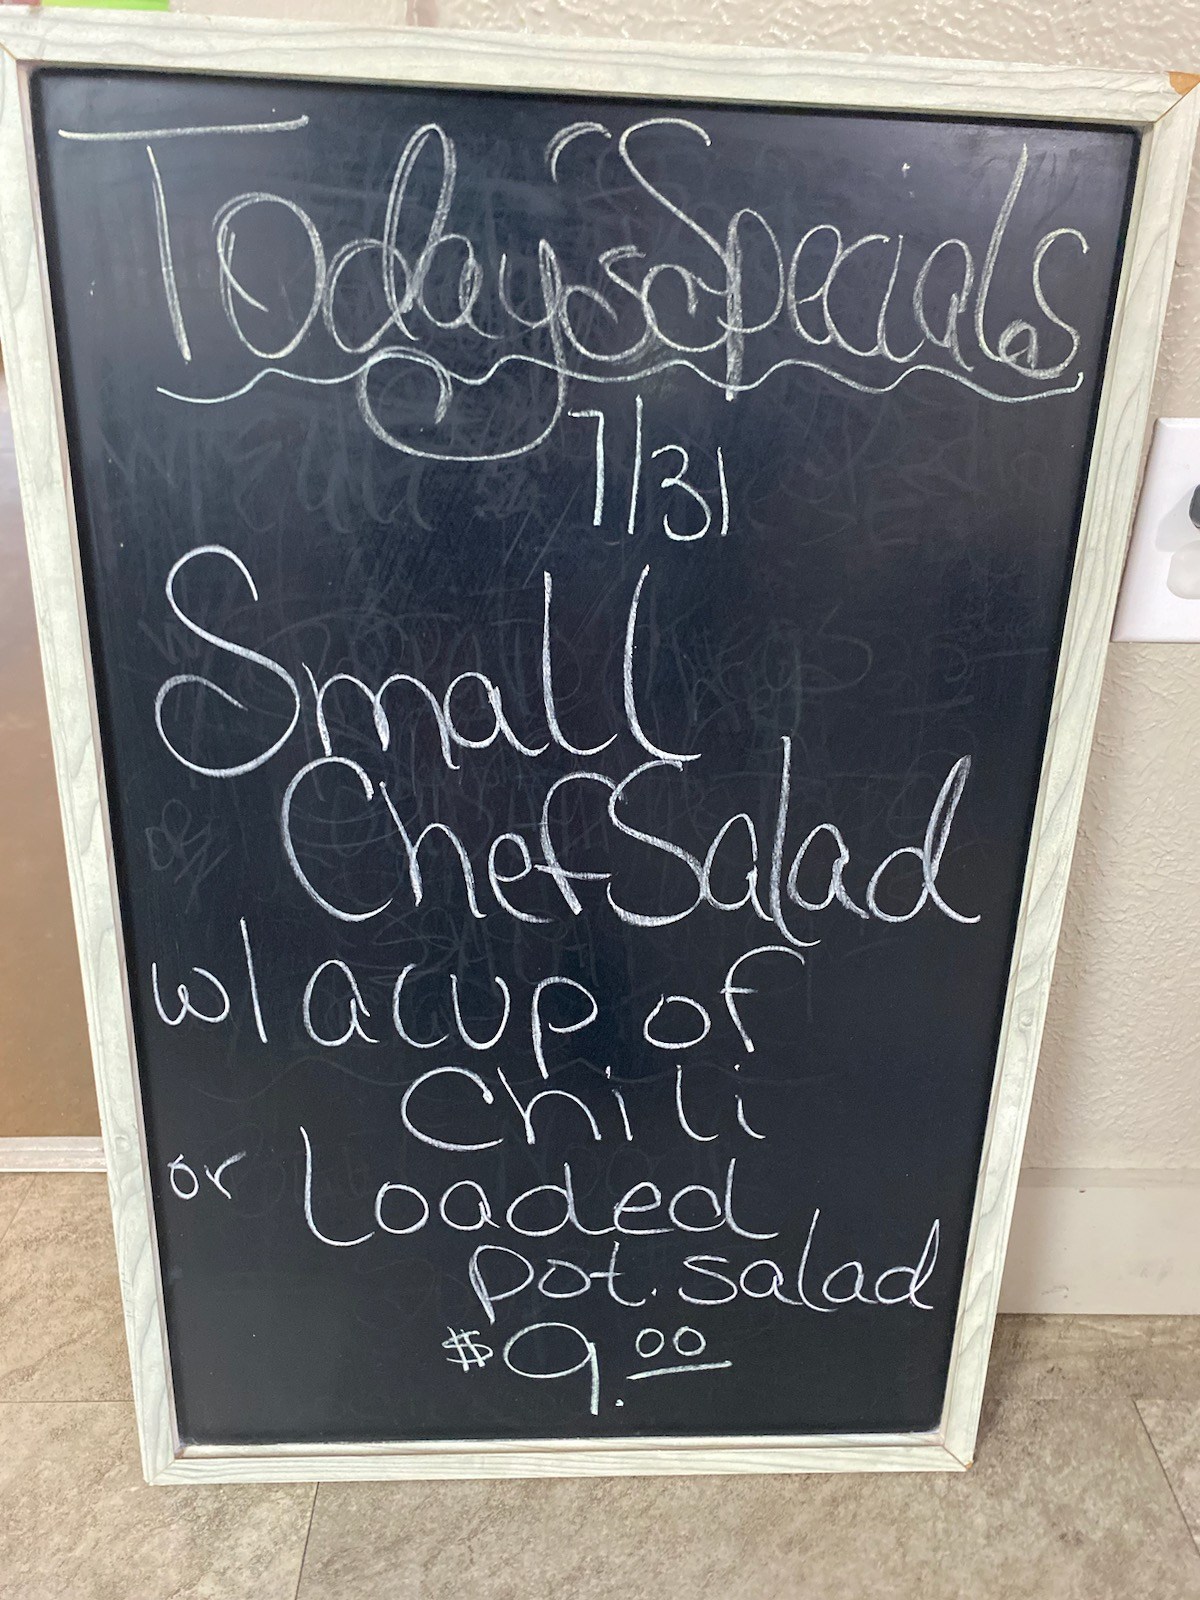 Today's Specials
7/31
Small
Chef Salad
w/ a cup of
Chili
or Loaded
pot. salad
$9.00